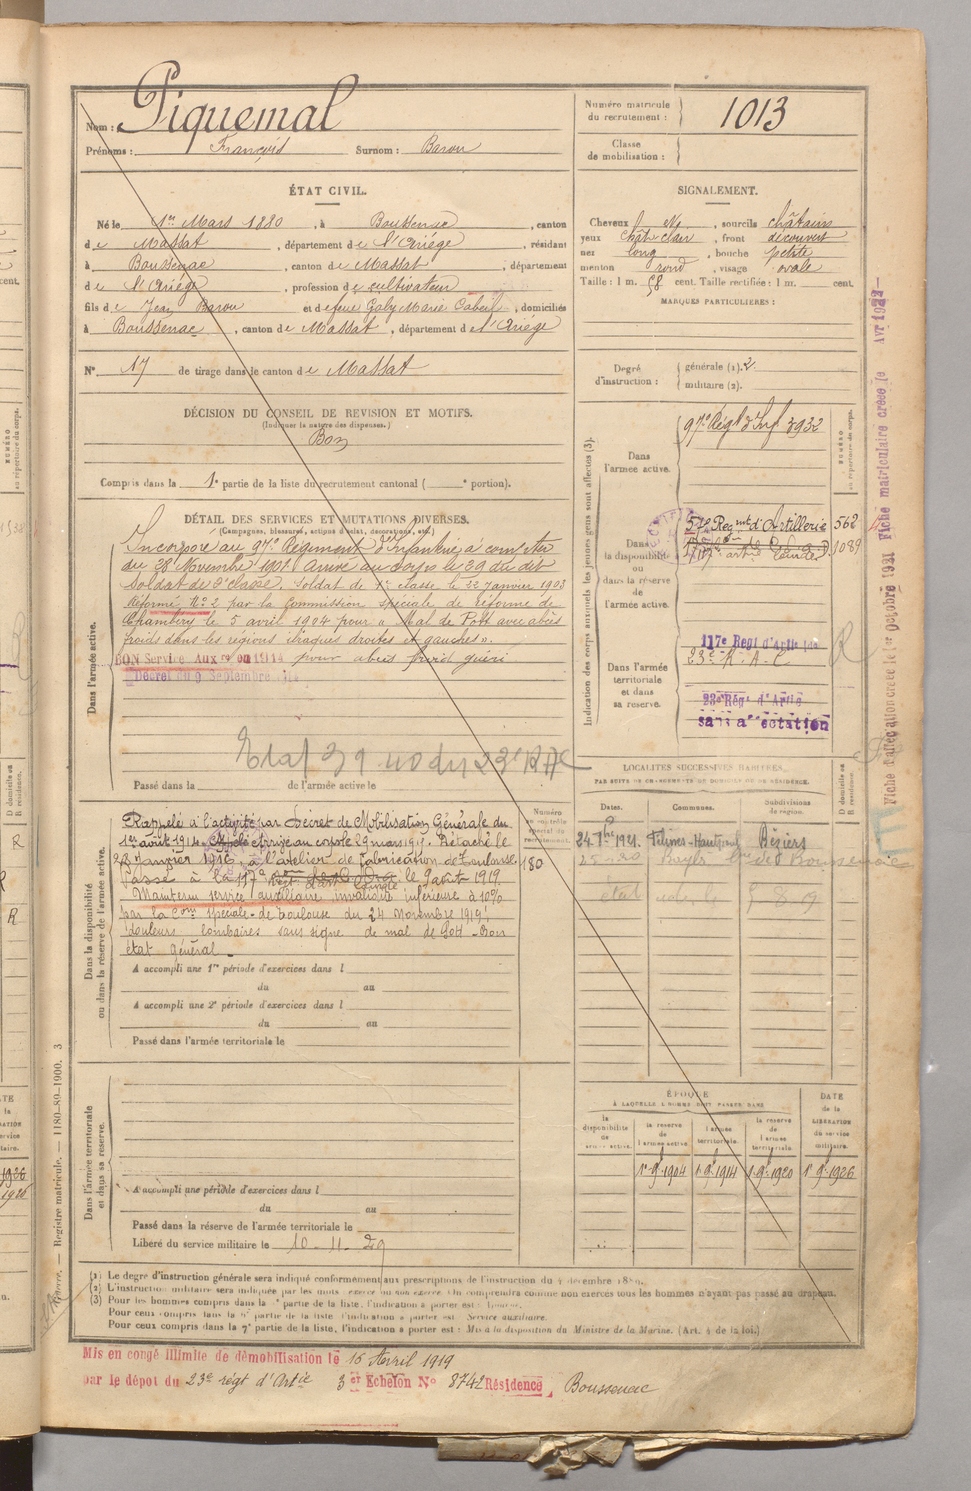 Nom : Piquemal
Prénoms : François Surnom : Barou
Numéro matricule du recrutement : 1013
Classe de mobilisation :
ÉTAT CIVIL.
Né le 1er Mars 1880, à Boussenac, canton
de Massat, département de l'Ariège, résidant
à Boussenac, canton de Massat, département
de l'Ariège, profession de cultivateur
fils de Jean Barou et de feue Gaby Marie, domiciliés
à Boussenac, canton de Massat, département de l'Ariège
N° 17 de tirage dans le canton de Massat
SIGNALEMENT.
Cheveux, sourcils châtains
yeux chât. clair, front découvert
nez long, bouche petite
menton rond, visage ovale
Taille : 1 m. 58 cent. Taille rectifiée : 1 m. cent.
MARQUES PARTICULIÈRES :
Degré d'instruction :
générale (1). 2
militaire (2).
DÉCISION DU CONSEIL DE REVISION ET MOTIFS.
(Indiquer la nature des dispenses.)
Bon
Compris dans la 1e partie de la liste du recrutement cantonal ( e portion).
DÉTAIL DES SERVICES ET MUTATIONS DIVERSES.
(Campagnes, blessures, actions d'éclat, décorations, etc.)
Dans l'armée active.
Incorporé au 97e Régiment d'Infanterie à compter
du 28 Novembre 1901. Arrivé au corps le 29 du dit
Soldat de 2e classe. Soldat de 1re classe le 22 janvier 1903
Réformé N° 2 par la Commission spéciale de réforme de
Chambéry le 5 avril 1904 pour « Mal de Pott avec abcès
froids dans les régions iliaques droites et gauches ».
BON Service Auxre en 1914 pour abcès froid guéri
Décret du 9 Septembre 1914
Passé dans la de l'armée active le
Indication des corps auxquels les jeunes gens sont affectés (3).
NUMÉRO au répertoire du corps.
Dans l'armée active.
97e Régt d'Inf. 3932
Dans la disponibilité ou dans la réserve de l'armée active.
57e Regmt d'Artillerie 562
1089
Dans l'armée territoriale et dans sa réserve.
117e Regt d'Artie
23e R.A.C
23e Rég. d'Artie
sans affectation
Fiche d'affectation créée le 1er Octobre 1921 Fiche matriculaire créée le Avr 1922
Dans la disponibilité ou dans la réserve de l'armée active.
Numéro au contrôle spécial du recrutement.
Rappelé à l'activité par Décret de Mobilisation Générale du
1er août 1914. dirigé au corps le 29 mars 1915. Détaché le
28 Janvier 1916, à l'atelier de fabrication de Toulouse. 180
Passé à la 117e le 9 août 1919.
Maintenu service auxiliaire, invalidité inférieure à 10%
par la Con spéciale de Toulouse du 24 Novembre 1919:
douleurs lombaires sans signe de mal de Pott - Bon
état général.
A accompli une 1re période d'exercices dans l
du au
A accompli une 2e période d'exercices dans l
du au
Passé dans l'armée territoriale le
LOCALITÉS SUCCESSIVES HABITÉES,
PAR SUITE DE CHANGEMENTS DE DOMICILE OU DE RÉSIDENCE.
Dates. Communes. Subdivisions de région. D domicile ou R résidence.
1921. Béziers
Dans l'armée territoriale et dans sa réserve.
A accompli une période d'exercices dans l
du au
Passé dans la réserve de l'armée territoriale le
Libéré du service militaire le 10-11-29
ÉPOQUE
À LAQUELLE L'HOMME DOIT PASSER DANS
la disponibilité de l'armée active.
la réserve de l'armée active.
l'armée territoriale.
la réserve de l'armée territoriale.
DATE de la LIBÉRATION du service militaire.
1er 9bre 1904 1er 9bre 1914 1er 9bre 1920 1er 9bre 1926
(1) Le degré d'instruction générale sera indiqué conformément aux prescriptions de l'instruction du 4 décembre 1889.
(2) L'instruction militaire sera indiquée par les mots : exercé ou non exercé. On comprendra comme non exercés tous les hommes n'ayant pas passé au drapeau.
(3) Pour les hommes compris dans la partie de la liste, l'indication à porter est :
Pour ceux compris dans la partie de la liste l'indication à porter est : Service auxiliaire.
Pour ceux compris dans la 7e partie de la liste, l'indication à porter est : Mis à la disposition du Ministre de la Marine. (Art. 4 de la loi.)
Registre matricule. — 1180-89-1900. 3
Mis en congé illimité de démobilisation le 16 Avril 1919
par le dépôt du 23e régt d'Artie 3er Echelon N° 8742 Résidence Boussenac